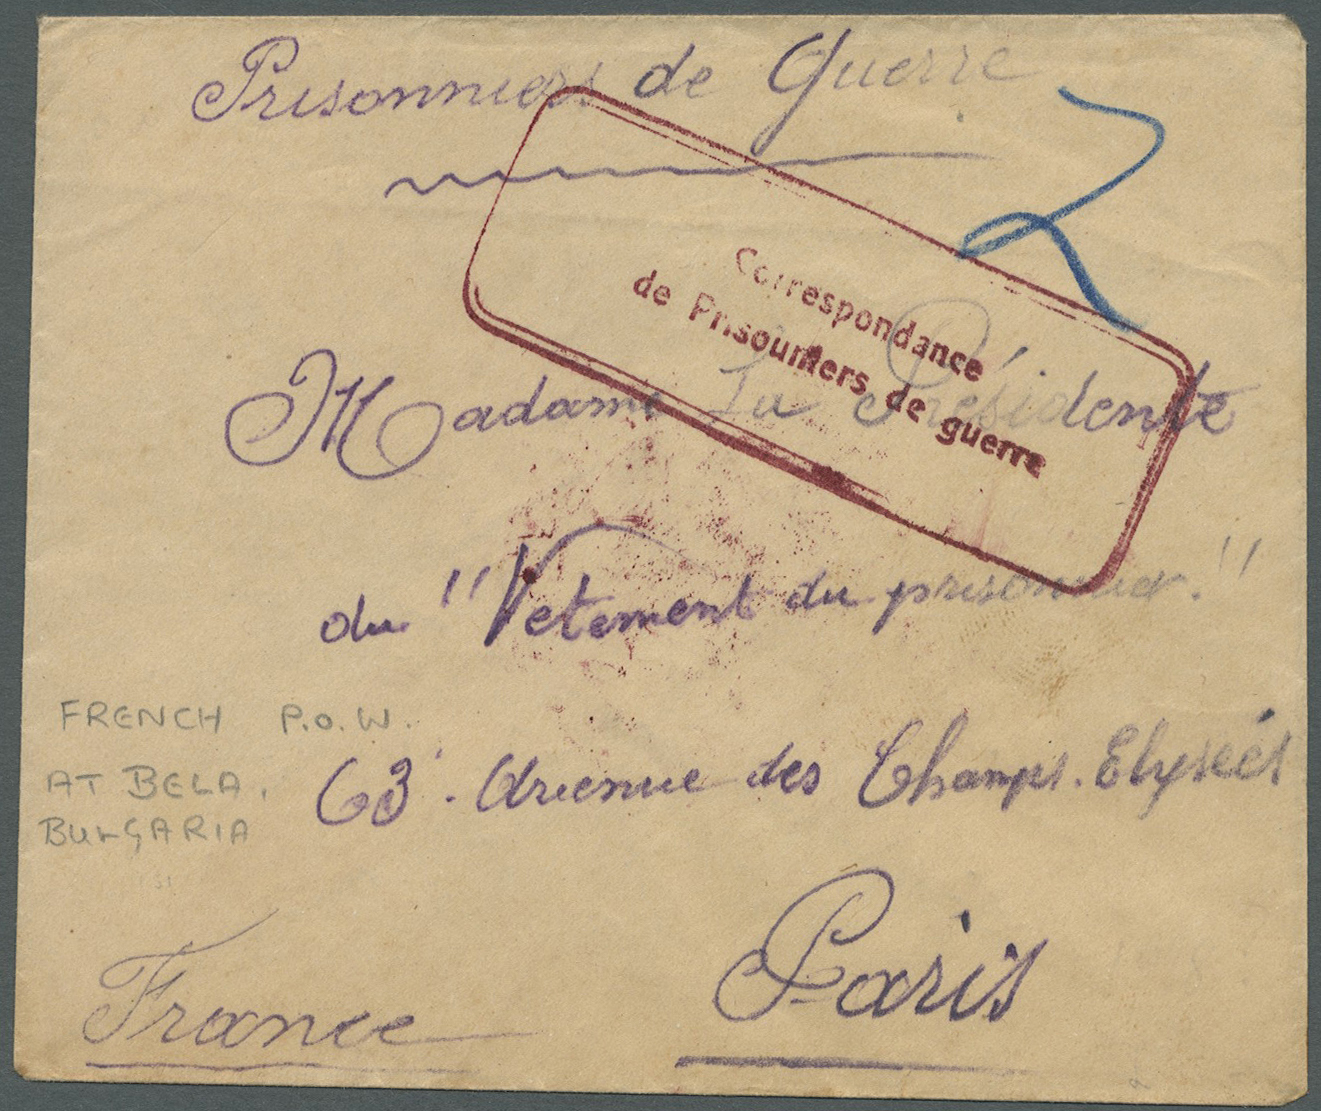 Prisonniers de Guerre
Correspondance
de Prisonniers de guerre
Madame La Présidente
du "Vetement du prisonnier."
FRENCH P.O.W.
AT BELA,
BULGARIA
63. Avenue des Champs-Elysées
Paris
France